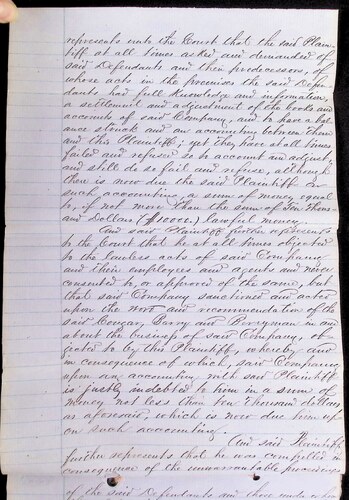 represents unto the Court that the said Plain-
tiff at all times asked and demanded of
said Defendants and their predecessors, of
whose acts in the premises the said Defen-
dants had full knowledge and information,
a settlement and adjustment of the books and
accounts of said Company, and to have a bal-
ance struck and an accounting between them
and this Plaintiff; yet they have at all times
failed and refused so to account and adjust,
and still do so fail and refuse, although
there is now due the said Plaintiff on
such accounting, a sum of money equal
to, if not more than the sum of Ten Thous-
and Dollars ($10000.) lawful money.
And said Plaintiff further represents
to the Court that he at all times objected
to the lawless acts of said Company
and their employees and agents and never
consented to, or approved of the same, but
that said Company sanctioned and acted
upon the and recommendation of the
said Cougar, Barry and in and
about the business of said Company, ob-
jected to by this Plaintiff, whereby and
in consequence of which, said Company
upon an accounting with said Plaintiff
is justly indebted to him in a sum of
money not less than ten thousand dollars
as aforesaid, which is now due him up-
on such accounting.
And said Plaintiff
further represents that he was compelled in
consequence of the unwarrantable proceedings
of the said Defendants and those under